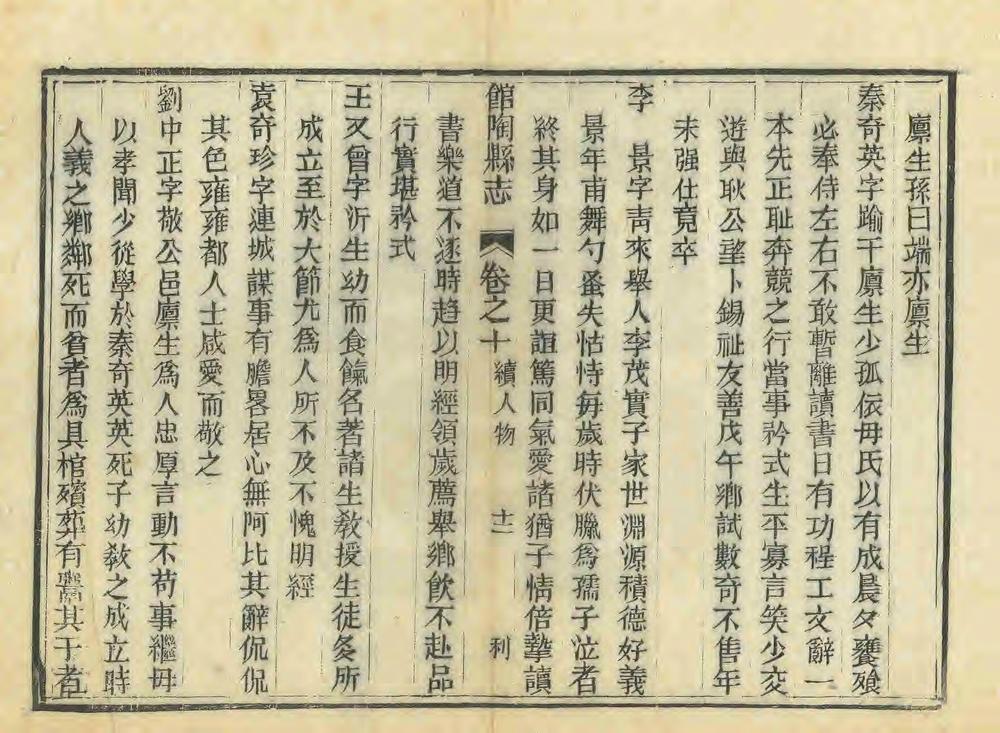 廪生孫曰端亦廪生
秦奇英字踰千廪生少孤依母氏以有成晨夕饔飱
必奉侍左右不敢暫離讀書日有功程工文辭一
本先正耻奔競之行當事矜式生平寡言笑少交
遊與耿公埾卜錫祉友善戊午鄉試數奇不售年
未强仕竟卒
李　景字靑來舉人李茂實子家世淵源積德好義
景年甫舞勺蚤失怙恃每歲時伏臘爲孺子泣者
終其身如一日更誼篤同氣愛諸猶子情倍摯讀
館陶縣志　卷之十　續人物　十二　利
書樂道不逐時趋以明經領歲薦舉鄉飲不赴品
行實堪矜式
王又曾字沂生幼而食餼名著諸生教授生徒多所
成立至於大節尤爲人所不及不愧明經
袁奇珍字連城謀事有膽畧居心無阿比其辭侃侃
其色雍雍都人士咸愛而敬之
劉中正字敬公邑廪生爲人忠厚言動不苟事繼母
以孝聞少從學於秦奇英英死子幼敎之成立時
人義之鄉鄰死而貧者爲具棺殯葬有鬻其子者